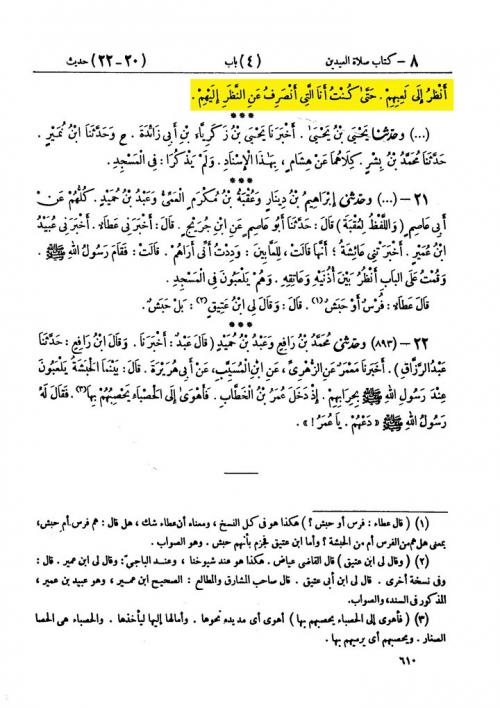 ٨ - كتاب صلاة العيدين (٤) باب (٢٠ - ٢٢) حديث
أَنْظُرُ إِلَى لَعِبِهِمْ . حَتَّىٰ كُنْتُ أَنَا الَّتِي أَنْصَرِفُ عَنِ النَّظَرِ إِلَيْهِمْ .
***
(...) وحدثنا يَحْيَىٰ بْنُ يَحْيَىٰ . أَخْبَرَنَا يَحْيَىٰ بْنُ زَكَرِيَّاءَ بْنِ أَبِي زَائِدَةَ . ح وَحَدَّثَنَا ابْنُ نُمَيْرٍ .
حَدَّثَنَا مُحَمَّدُ بْنُ بِشْرٍ . كِلَاهُمَا عَنْ هِشَامٍ ، بِهَٰذَا الْإِسْنَادِ . وَلَمْ يَذْكُرَا : فِي الْمَسْجِدِ .
***
٢١ - (...) وحدثني إِبْرَاهِيمُ بْنُ دِينَارٍ وَعُقْبَةُ بْنُ مُكْرَمٍ الْعَمِّيُّ وَعَبْدُ بْنُ حُمَيْدٍ . كُلُّهُمْ عَنْ
أَبِي عَاصِمٍ ( وَاللَّفْظُ لِعُقْبَةَ ) قَالَ : حَدَّثَنَا أَبُو عَاصِمٍ عَنِ ابْنِ جُرَيْجٍ . قَالَ : أَخْبَرَنِي عَطَاءٌ . أَخْبَرَنِي عُبَيْدُ
ابْنُ عُمَيْرٍ . أَخْبَرَتْنِي عَائِشَةُ ؛ أَنَّهَا قَالَتْ ، لِلَعَّابِينَ : وَدِدْتُ أَنِّي أَرَاهُمْ . قَالَتْ : فَقَامَ رَسُولُ اللهِ ﷺ .
وَقُمْتُ عَلَى الْبَابِ أَنْظُرُ بَيْنَ أُذُنَيْهِ وَعَاتِقِهِ . وَهُمْ يَلْعَبُونَ فِي الْمَسْجِدِ .
قَالَ عَطَاءٌ : فُرْسٌ أَوْ حَبَشٌ (١) . قَالَ : وَقَالَ لِي ابْنُ عَتِيقٍ (٢) : بَلْ حَبَشٌ .
***
٢٢ - (٨٩٣) وحدثني مُحَمَّدُ بْنُ رَافِعٍ وَعَبْدُ بْنُ حُمَيْدٍ ( قَالَ عَبْدٌ : أَخْبَرَنَا . وَقَالَ ابْنُ رَافِعٍ : حَدَّثَنَا
عَبْدُ الرَّزَّاقِ ) . أَخْبَرَنَا مَعْمَرٌ عَنِ الزُّهْرِيِّ ، عَنِ ابْنِ الْمُسَيَّبِ ، عَنْ أَبِي هُرَيْرَةَ . قَالَ : بَيْنَمَا الْحَبَشَةُ يَلْعَبُونَ
عِنْدَ رَسُولِ اللهِ ﷺ بِحِرَابِهِمْ . إِذْ دَخَلَ عُمَرُ بْنُ الْخَطَّابِ . فَأَهْوَىٰ إِلَى الْحَصْبَاءِ يَحْصِبُهُمْ بِهَا (٣) . فَقَالَ لَهُ
رَسُولُ اللهِ ﷺ « دَعْهُمْ . يَا عُمَرُ ! » .
(١) ( قال عطاء : فرس أو حبش ؟ ) هكذا هو في كل النسخ ، ومعناه أن عطاء شك ، هل قال : هم فرس أم حبش ،
بمعنى هل هم من الفرس أم من الحبشة ؟ وأما ابن عتيق فجزم بأنهم حبش . وهو الصواب .
(٢) ( وقال لي ابن عتيق ) قال القاضي عياض . هكذا هو عند شيوخنا ، وعند الباجيّ : وقال لي ابن عمير . قال :
وفي نسخة أخرى . قال لي ابن أبي عتيق . قال صاحب المشارق والمطالع : الصحيح ابن عمير ، وهو عبيد بن عمير ،
المذكور في السند، والصواب .
(٣) ( فأهوى إلى الحصباء يحصبهم بها ) أهوى أي مد يده نحوها . وأمالها إليها ليأخذها . والحصباء هي الحصا
الصغار . ويحصبهم أي يرميهم بها .
٦١٠